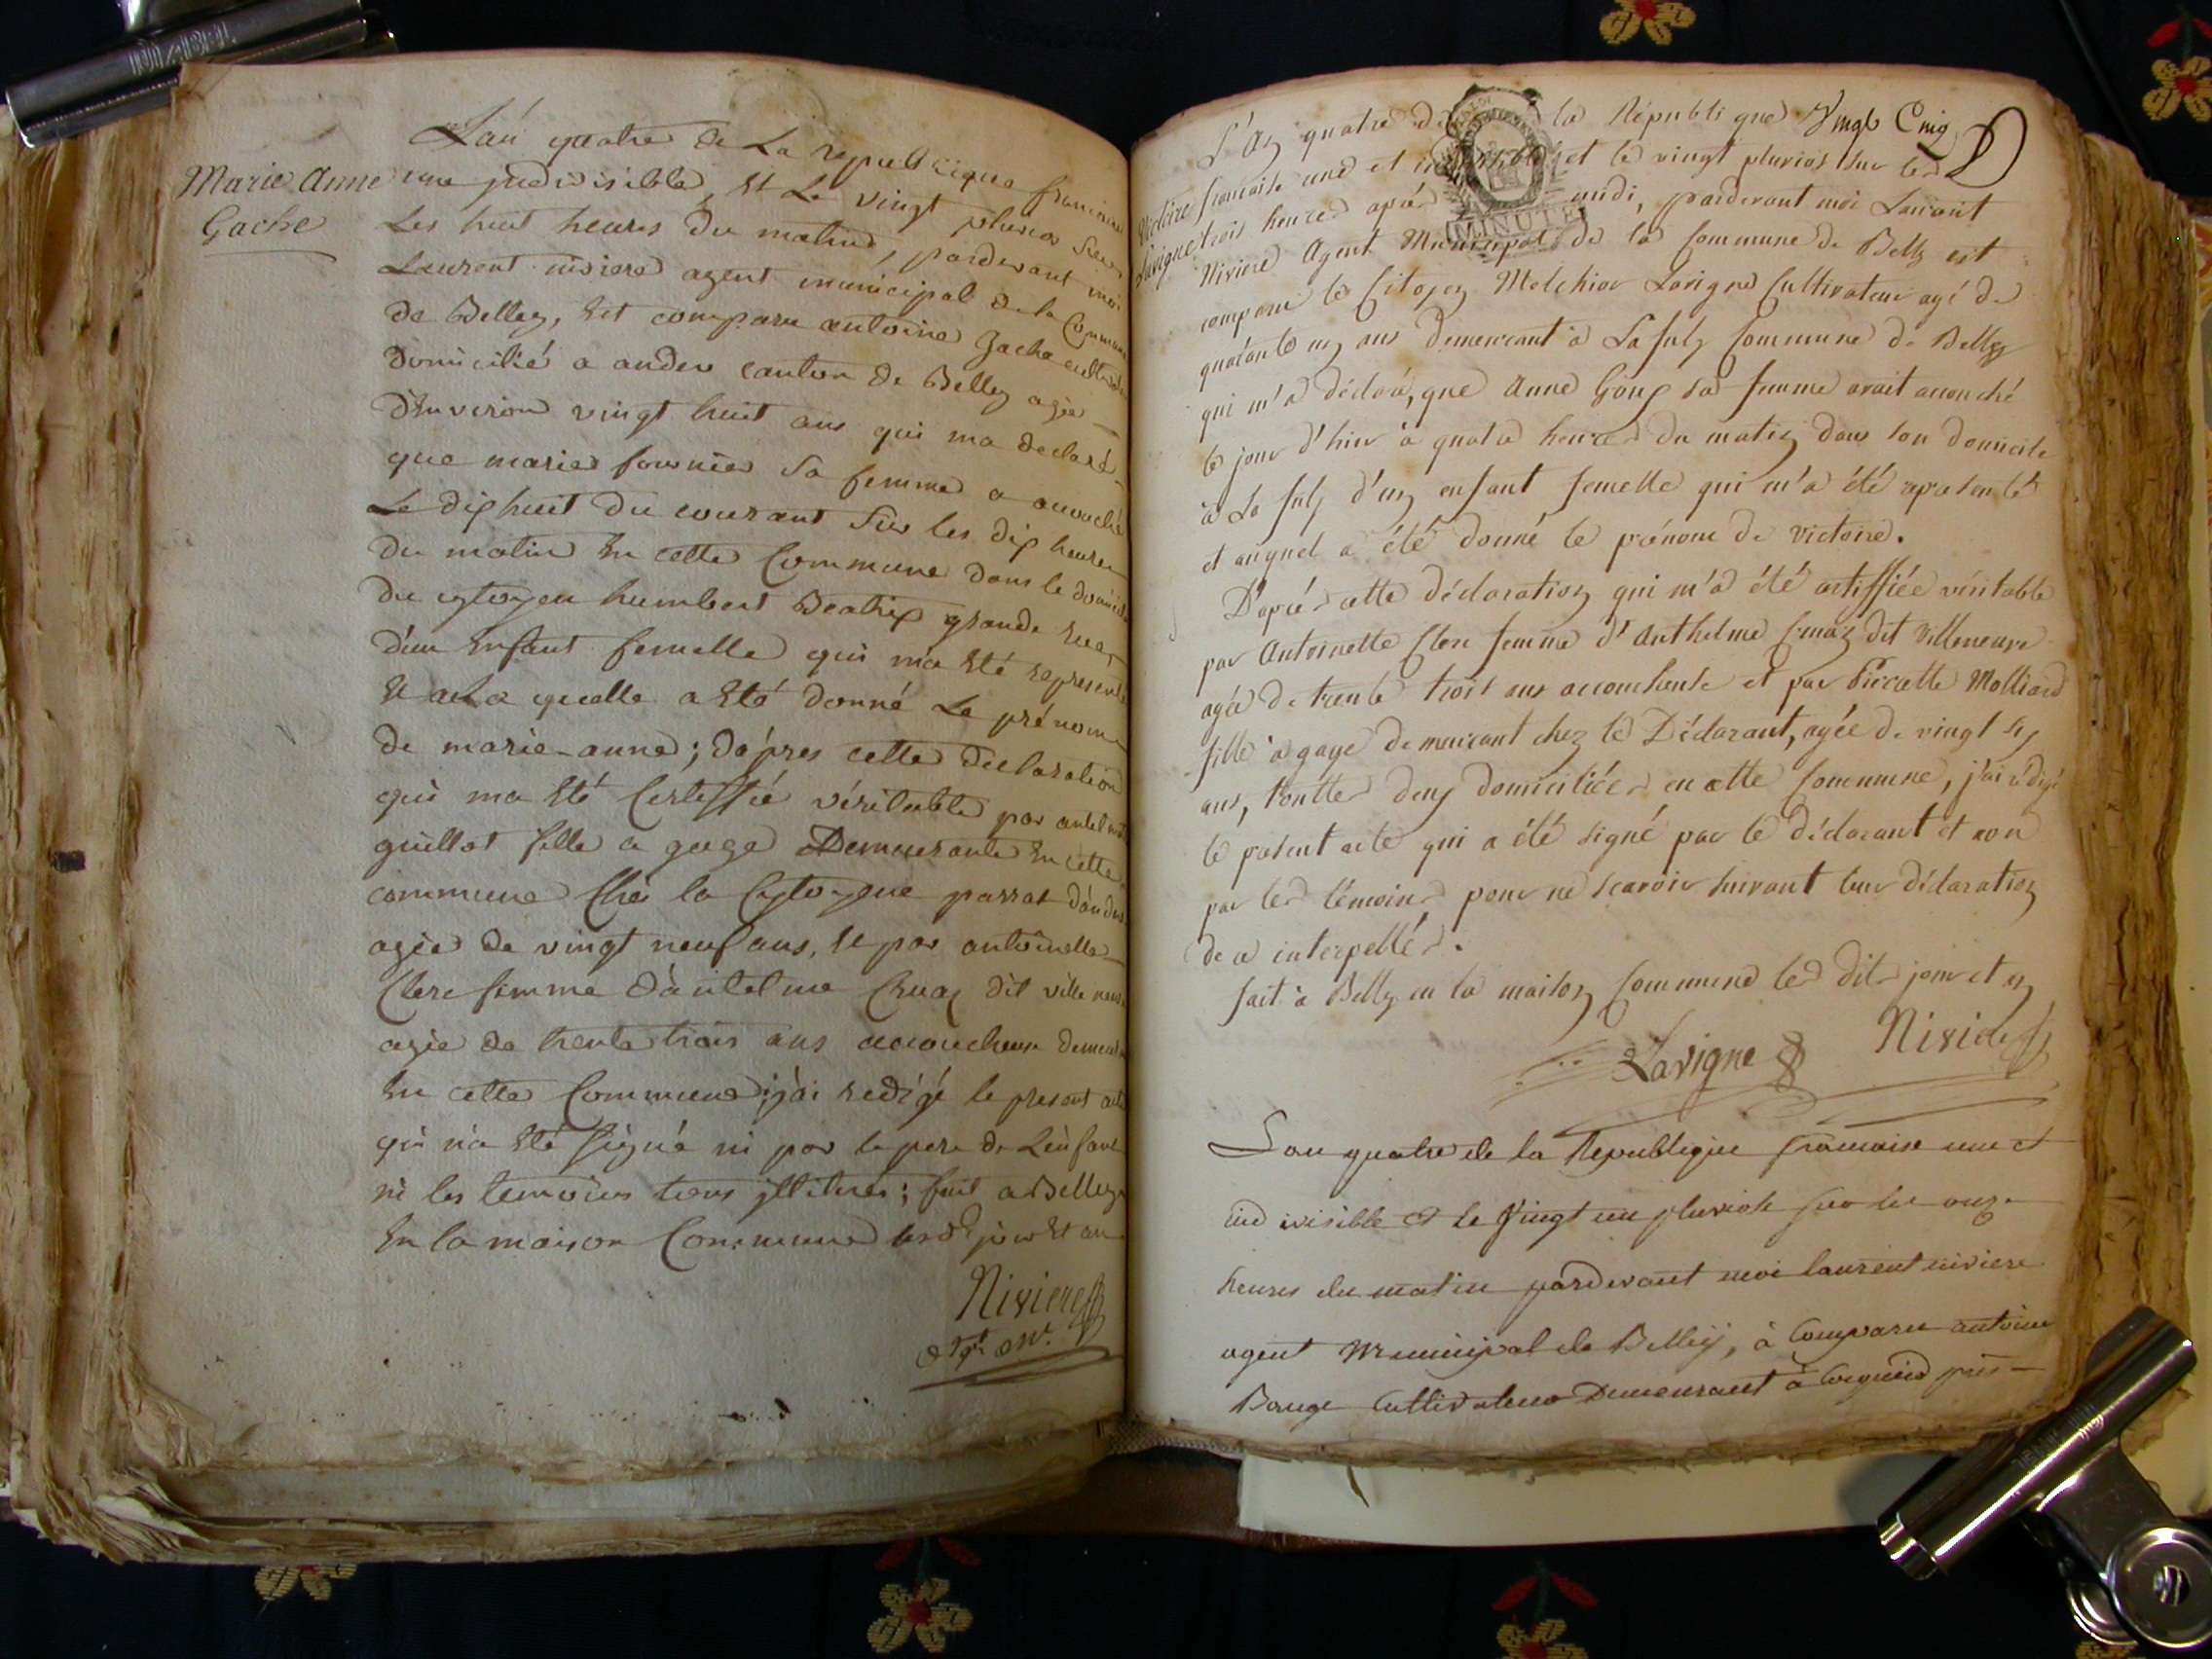 Marie Anne
Gache
L'an quatre de La republique francaise
une judivisible, et Le vingt pluvios sur
Les huit heures du matin, pardevant moi
Laurent niviere agent municipal de la Commune
de Belley, Est comparu antoine Gache cultivateur
domicilié a andert canton de Belley agée
d'Environ vingt huit ans qui ma declaré
que marie fournier sa femme a accouché
Le dixhuit du courant sur les dix heures
du matin En cette Commune dans le domicile
du cytoyen humbert Beatrix grande Rue,
d'un Enfant femelle qui ma Eté represente
Et a La quelle a Eté donné Le prénom
de marie-anne; d'apres cette declaration
qui ma Eté Certiffié véritable par antelmette
guillot fille a gage Demeurante En cette
commune Chés la Cytoyene parrat d'andert
agée de vingt neuf ans, Et par antoinette
Clerc femme d'antelme Cruaz dit ville neuve
agée de trente trois ans accoucheuse demeurant
En cette Commune; j'ai redigé le present acte
qui n'a Eté signé ni par le pere de L'enfant
ni les temoins tous jllitérés; fait a Belley
En la maison Commune lesdt jour Et an
Niviere
agt mt
Vingt Cinq
Victoire
Lavigne
L'an quatre de la République
francaise une et indivisible et le vingt pluvios sur les
trois heures après midi, pardevant moi Laurant
Niviere Agent Municipal de la Commune de Belley est
comparu le Citoyen Melchior Lavigne Cultivateur agé de
quarante un ans demeurant à La fuly Commune de Belley
qui m'a déclaré, que Anne Gouy sa femme avait accouché
le jour d'hier à quatre heures du matin dans son domicile
à La fuly d'un enfant femelle qui m'a été représenté
et auquel a été donné le prénom de Victoire.
D'après cette déclaration qui m'a été certiffiée véritable
par Antoinette Clerc femme d'Anthelme Cruaz dit Villeneuve
agée de trente trois ans accouchante et par Pierrette Molliard
fille à gage demeurant chez le Déclarant, agée de vingt six
ans, toutes deux domiciliées en cette Commune, j'ai rédigé
le présent acte qui a été signé par le déclarant et non
par les témoins pour ne scavoir suivant leur déclaration
de ce interpellés.
fait à Belley en la maison Commune les dits jour et an
Lavigne Niviere
L'an quatre de la Republique francaise une et
ind ivisible et le Vingt un pluviose sur les onze
heures du matin pardevant moi laurent niviere
agent Municipal de Belley, à Comparu antoine
Bauge Cultivateur Demeurant à Coron près